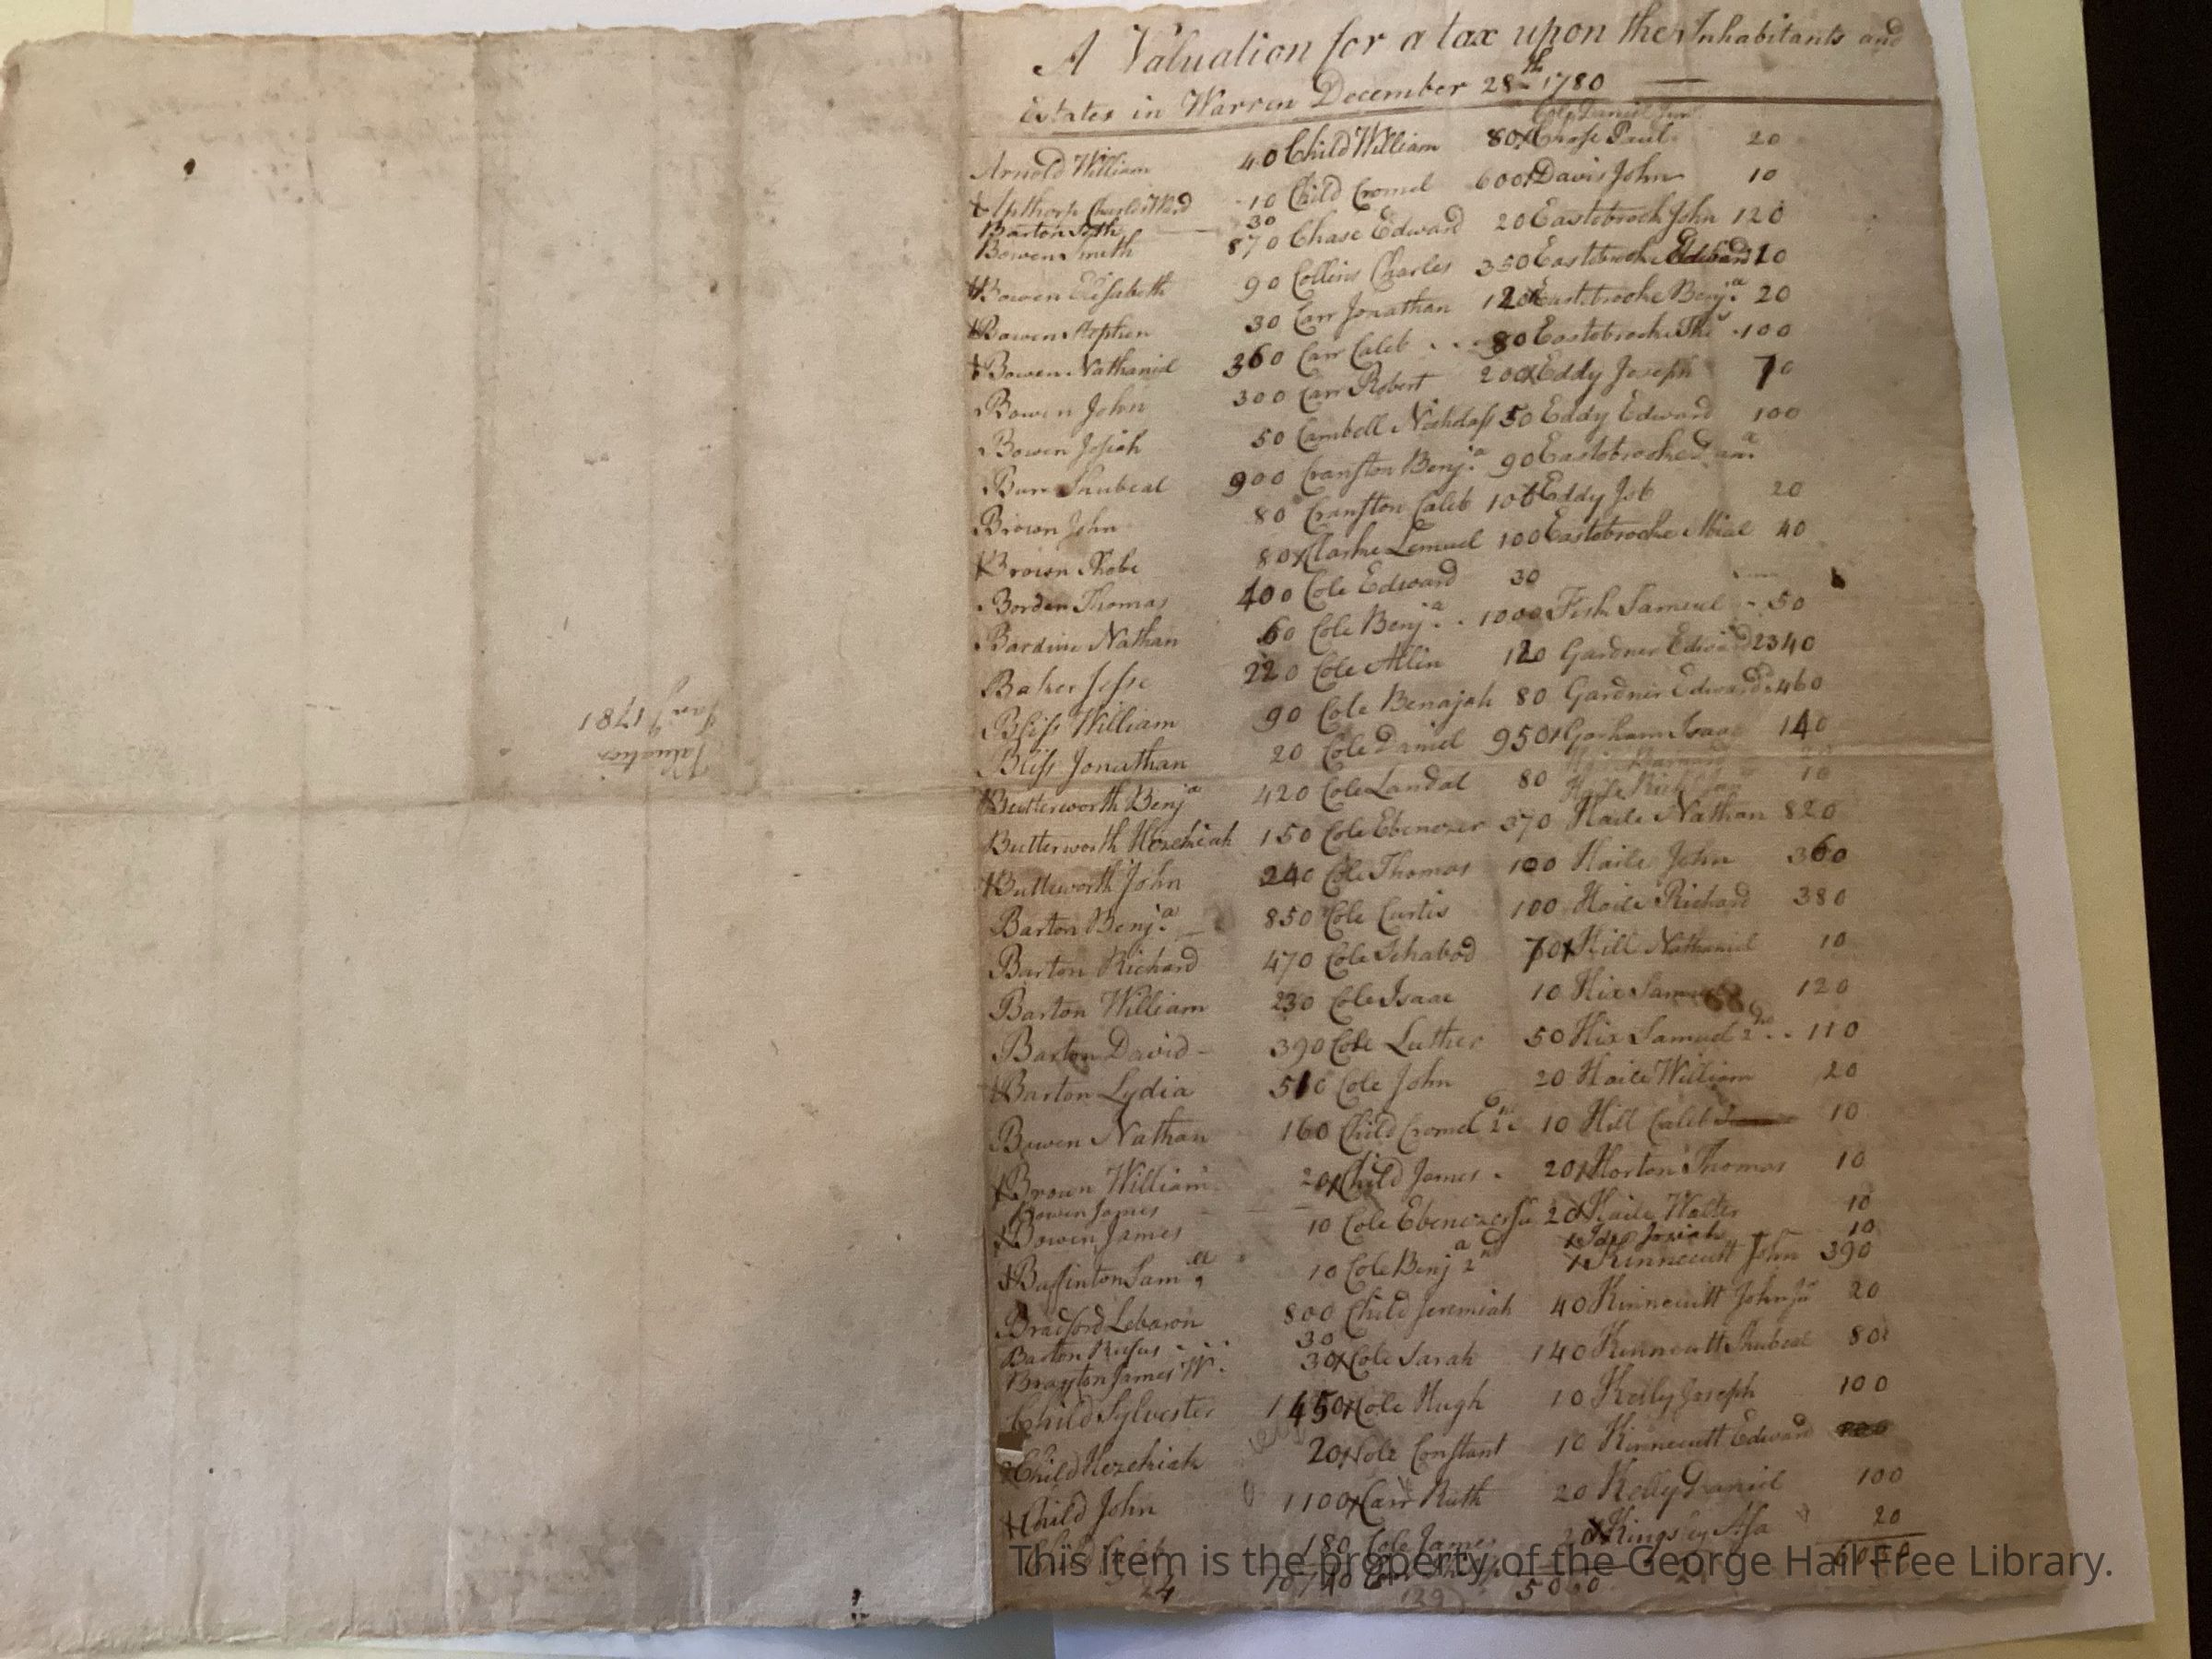 A Valuation for a tax upon the Inhabitants and
Estates in Warren December 28th 1780
Arnold William 40
Apthorp Charles Ward 10
Barton Seth 30
Bowen Smith 870
Bowen Elisabeth 90
Bowen Stephen 30
Bowen Nathaniel 360
Bowen John 300
Bowen Josiah 50
Burr Shubeal 900
Brown John 80
Brown Phobe 80
Borden Thomas 400
Bardine Nathan 60
Baker Jesse 220
Bliss William 90
Bliss Jonathan 20
Butterworth Benja 420
Butterworth Hezekiah 150
Butterworth John 240
Barton Benja 850
Barton Richard 470
Barton William 230
Barton David 390
Barton Lydia 510
Bowen Nathan 160
Brown William 20
Bowen James
Bowen James 10
Buffinton Samll 10
Bradford Lebaron 800
Barton Rufus 30
Brayton James W. 30
Child Sylvester 1450
Child Hezekiah 20
Child John 1100
Child 180
24
Child William 80
Child Cromel 600
Chase Edward 20
Collins Charles 350
Carr Jonathan 120
Carr Caleb 80
Carr Robert 200
Cambell 50
Cranston Benja 90
Cranston Caleb 100
Clarke Lemuel 100
Cole Edward 30
Cole Benja 1000
Cole Allin 120
Cole Benajah 80
Cole Daniel 950
Cole Landal 80
Cole Ebenezer 370
Cole Thomas 100
Cole Curtis 100
Cole Ichabod 70
Cole Isaac 10
Cole Luther 50
Cole John 20
Child Cromel 2nd 10
Child James 20
Cole Ebenezer Ju 20
Cole Benja 2nd
Child Jeremiah 40
Cole Sarah 140
Cole Hugh 10
Cole Constant 10
Carr Ruth 20
Cole James 20
Cole Daniel Junr
Chase Paul 20
Davis John 10
Eastobrook John 120
Eastobrooke Edward 10
Eastobrooke Benja 20
Eastobrooke Tho 100
Eddy Joseph 70
Eddy Edward 100
Eastobrooke
Eddy Job 20
Eastobrooke Abial 40
Fish Samuel 50
Gardner Edward 2340
Gardner Edward 460
Gorham Isaac 140
Barnard
Haile Richd 10
Haile Nathan 820
Haile John 360
Haile Richard 380
Hill Nathaniel 10
Hix Samuel 120
Hix Samuel 2nd 110
Haile William 20
Hill Caleb 10
Horton Thomas 10
Haile Walter 10
Ide Josiah 10
Kinnecutt John 390
Kinnecutt John Jur 20
Kinnecutt Shubeal 80
Kelly Joseph 100
Kinnecutt Edward
Kelly Daniel 100
Kingsley Asa 20
Valuation
Jany 1781
This item is the property of the George Hail Free Library.